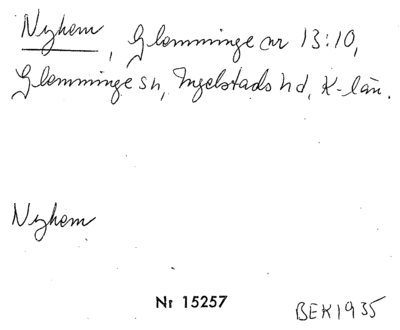 Nyhem, Glemminge nr 13:10,
Glemminge sn, Ingelstads hd, K-län.
Nyhem
Nr 15257
BEK1935